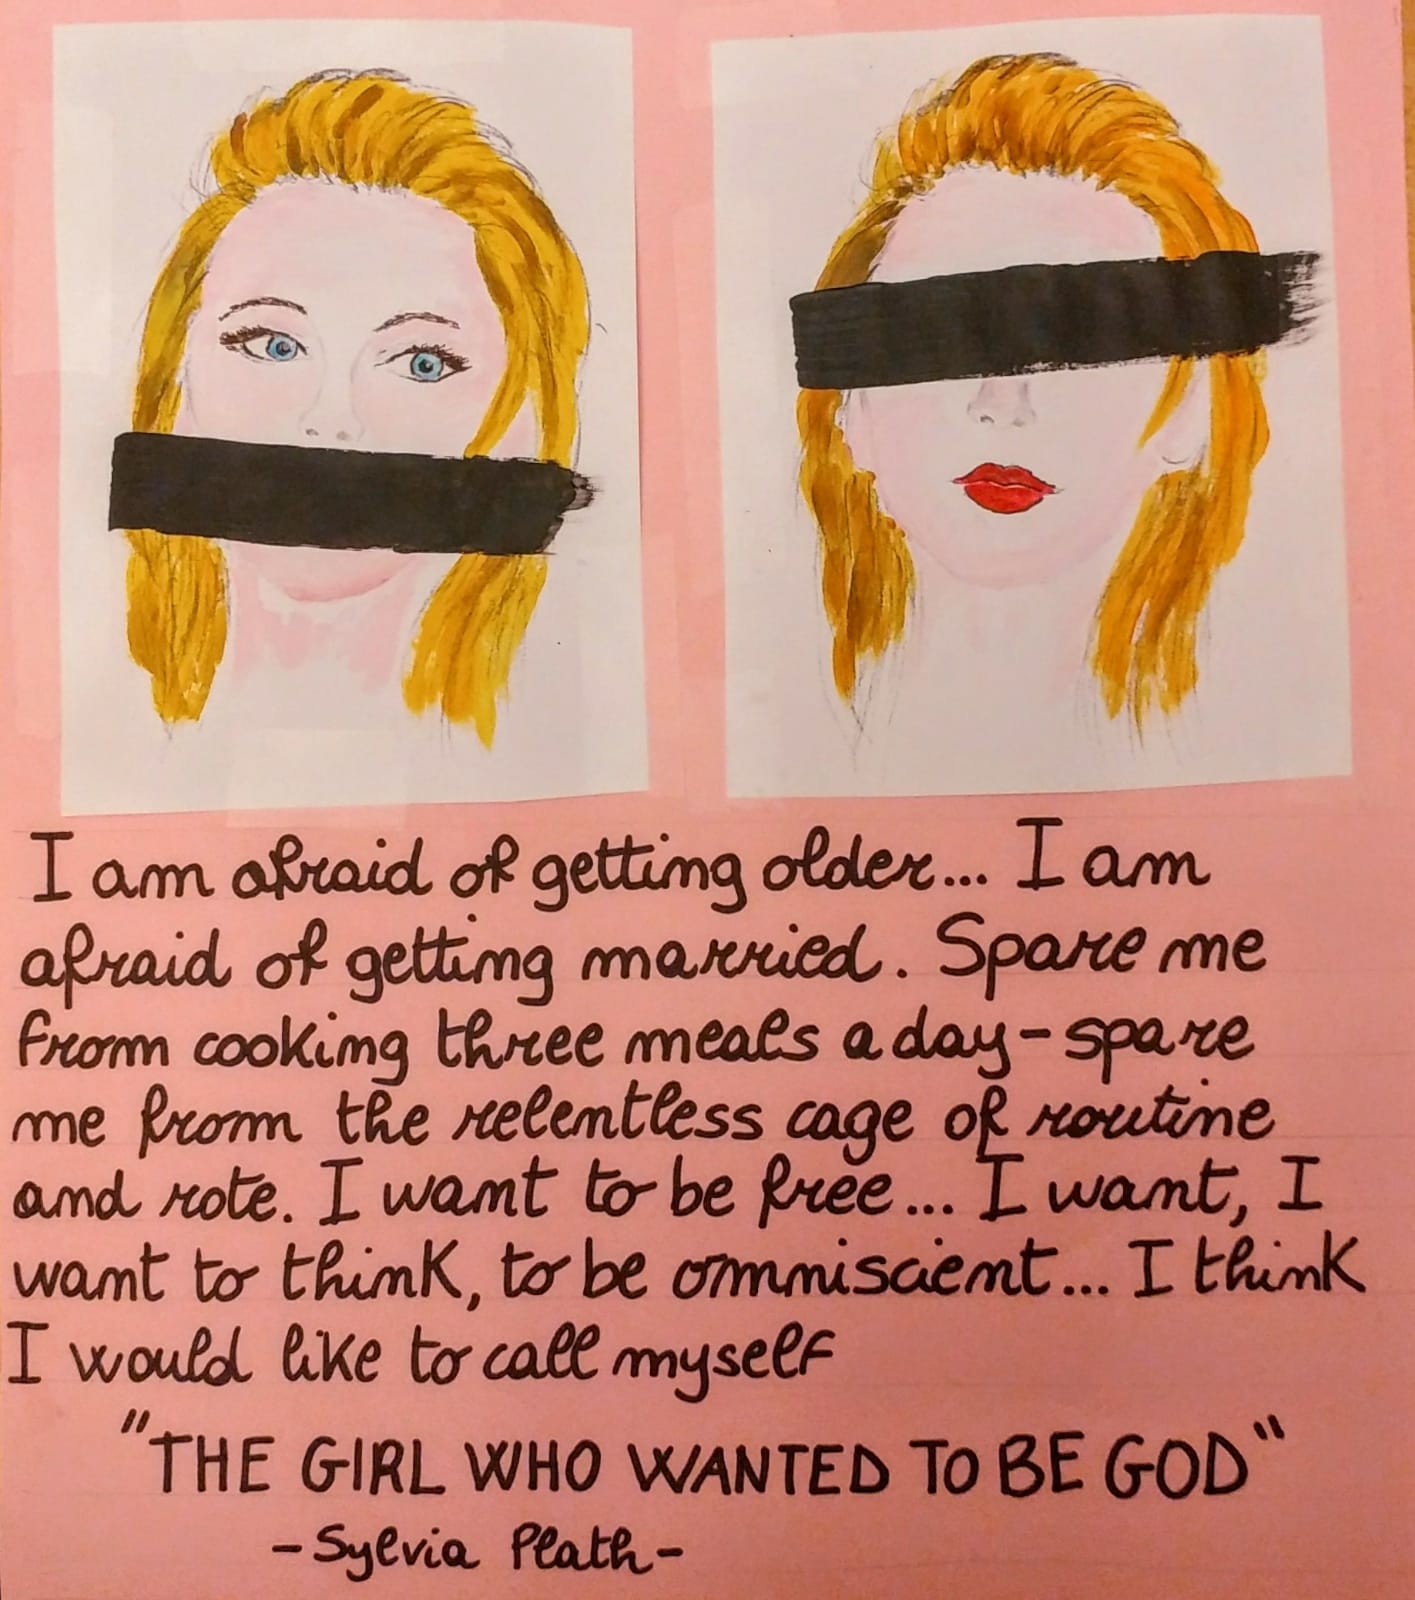 I am afraid of getting older... I am
afraid of getting married. Spare me
from cooking three meals a day-spare
me from the relentless cage of routine
and rote. I want to be free... I want, I
want to think, to be omniscient... I think
I would like to call myself
"THE GIRL WHO WANTED TO BE GOD"
- Sylvia Plath -